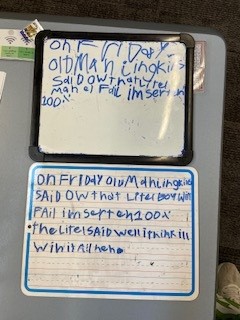 on FriDAY
OlDMAn Lingkins
SAiD OW thAt Litel
MAn al FAiL im serten
100%
on FriDAY OlD MAn Lingkins
SAiD OW that Litel BOOY Will
FAiL im serten 100%
the Litel SAiD Well i think ill
Win it All heho